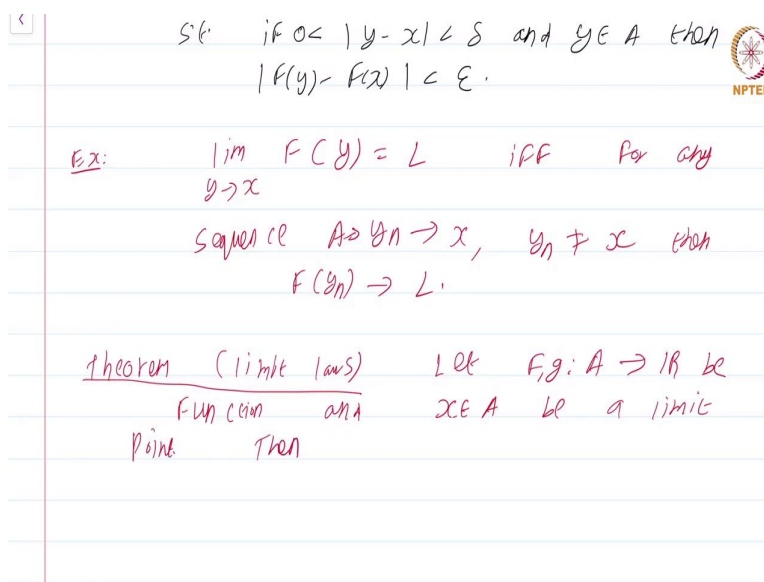 s.t. if 0 < |y - x| < δ and y ∈ A then
|F(y) - F(x)| < ε.
NPTE
Ex: lim F(y) = L iff for any
y→x
sequence A∋yn → x, yn ≠ x then
F(yn) → L.
Theorem (limit laws) Let F,g: A → IR be
Function and x ∈ A be a limit
Point. Then